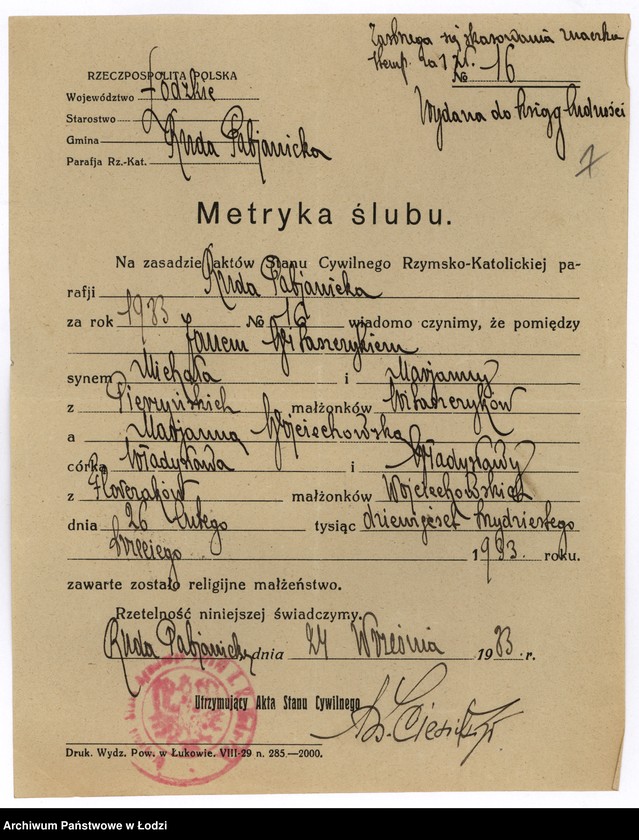 Zastrzega się skasowania znaczka
stemp. za 1 zł.
№ 16
Wydana do ksiąg ludności
7
RZECZPOSPOLITA POLSKA
Województwo Łódzkie
Starostwo
Gmina Ruda Pabjanicka
Parafja Rz.-Kat.
Metryka ślubu.
Na zasadzie aktów Stanu Cywilnego Rzymsko-Katolickiej pa-
rafji Ruda Pabjanicka
za rok 1933 № 16 wiadomo czynimy, że pomiędzy
Janem Witaszczykiem
synem Michała i Marjanny
z Pierzyńskich małżonków Witaszczyków
a Marjanną Wojciechowską
córką Władysława i Władysławy
z małżonków Wojciechowskich
dnia 26 Lutego tysiąc dziewięćset trzydziestego
trzeciego 1933. roku.
zawarte zostało religijne małżeństwo.
Rzetelność niniejszej świadczymy.
Ruda Pabjanicka, dnia 27 Września 1933 r.
Utrzymujący Akta Stanu Cywilnego
Druk. Wydz. Pow. w Łukowie. VIII-29 n. 285.—2000.
Archiwum Państwowe w Łodzi